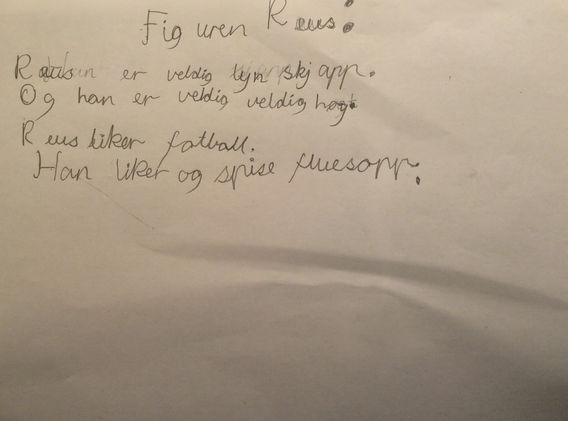 Figuren Reus:
Reus er veldig lynskjapp.
Og han er veldig veldig høg.
Reus liker fotball.
Han liker og spise fluesopp.